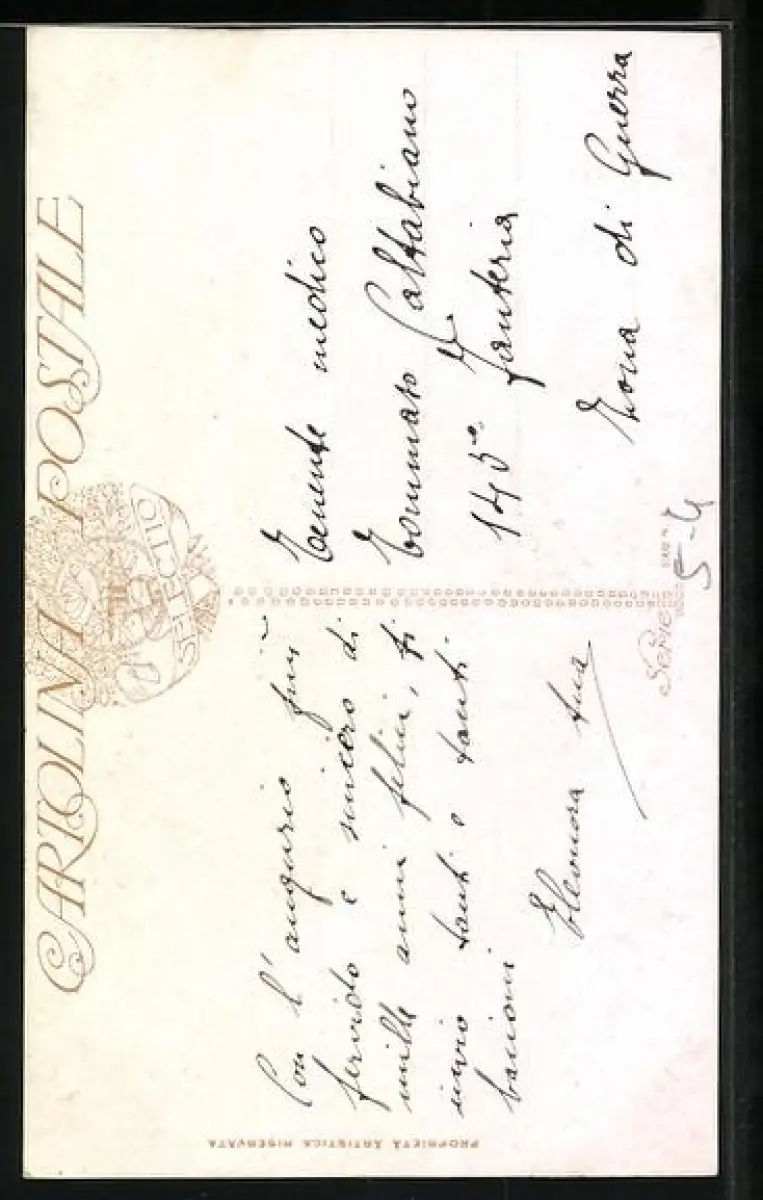 CARTOLINA POSTALE
Con l'augurio più
fervido e sincero di
mille anni felici, ti
invio tanti e tanti
bacioni
Eleonora tua
Tenente medico
Tommaso Caltabiano
145° Fanteria
Zona di Guerra
Serie
5-4
PROPRIETÀ ARTISTICA RISERVATA